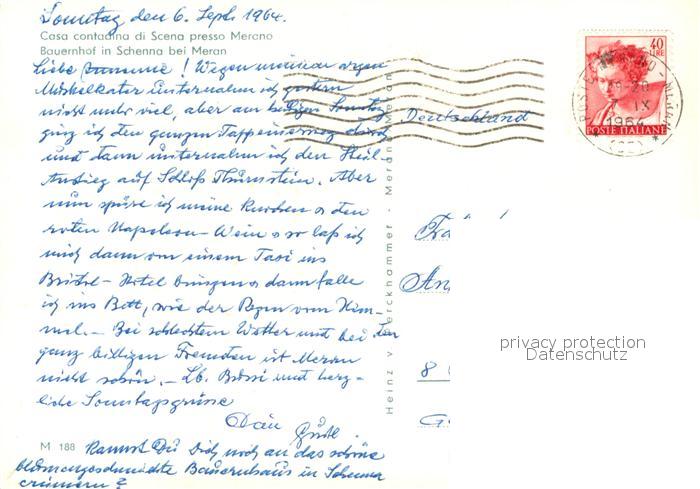 Sonntag, den 6. Sept. 1964.
Casa contadina di Scena presso Merano
Bauernhof in Schenna bei Meran
Liebe ! Wegen meinem argen
Muskelkater unternahm ich gestern
nicht mehr viel, aber am heutigen Sonntag
ging ich den ganzen Tappeinerweg durch
und dann unternahm ich den Steil-
Anstieg auf Schloß Thurnstein. Aber
nun spüre ich meine Knochen & den
roten Napoleon-Wein & so laß ich
mich dann von einem Taxi ins
Bristol-Hotel bringen & dann falle
ich ins Bett, wie der Regen vom Him-
mel. – Bei schlechtem Wetter und bei den
ganz billigen Fremden ist Meran
nicht schön. – Lb. Bussi und herz-
liche Sonntagsgrüsse
Dein
M 188 Kannst Du Dich noch an das schöne
blumengeschmückte Bauernhaus in Schenna
erinnern?
Heinz v. Merano
Deutschland
40
LIRE
POSTE ITALIANE
19-20
IX
1964
Fr
An
8
G
privacy protection
Datenschutz